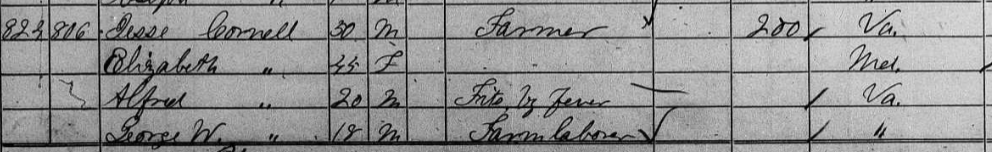 823 806 Jesse Cornell 50 M Farmer 200 Va.
Elizabeth " 45 F Md.
Alfred " 20 M Fits by Fever Va.
George W. " 18 M Farm laborer "